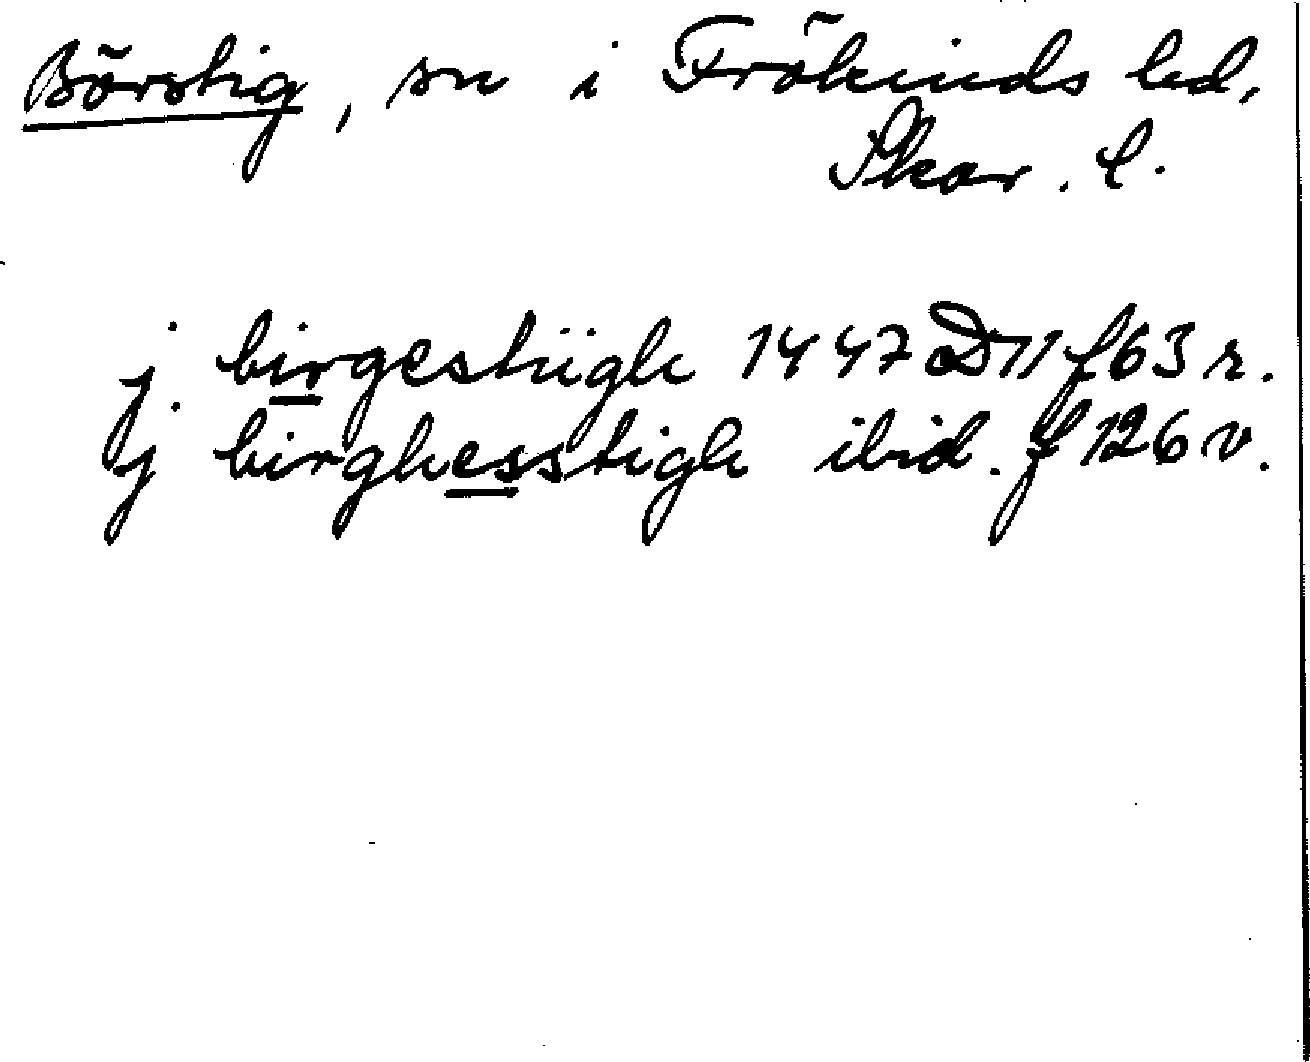 Börstig, sn i Frökinds hd,
Skar. l.
j birgestiigh 1447 D 11 f 63 r.
j birghesstigh ibid. f 126 v.